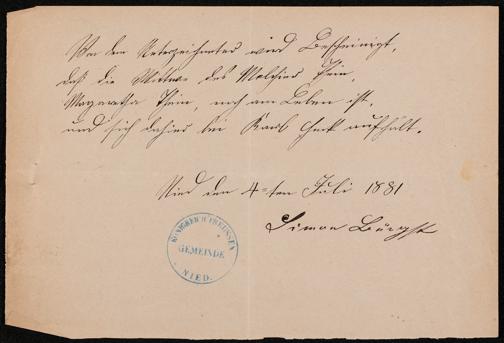 Von dem Unterzeichneten wird bescheinigt,
daß die Wittwe des Melchior Thein,
Margaretha Thein, noch am Leben ist,
und sich dahier bei Karl aufhält.
Nied den 4-ten Juli 1881
Simon
KÖNIGREICH PREUSSEN
GEMEINDE
NIED.